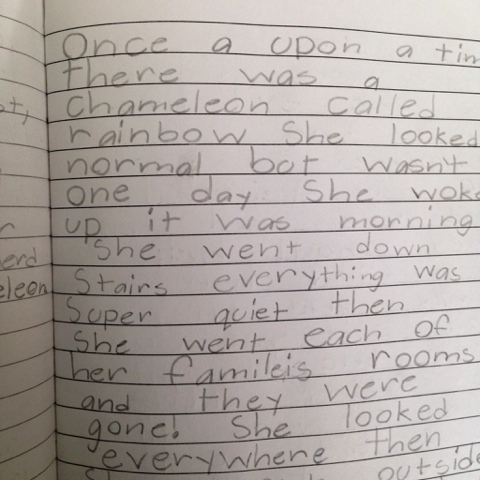 Once a upon a tim
there was a
chameleon called
rainbow She looked
normal but wasn't
one day She woke
up it was morning
She went down
Stairs everything was
Super quiet then
She went each of
her famileis rooms
and they were
gone! She looked
everywhere then
outside